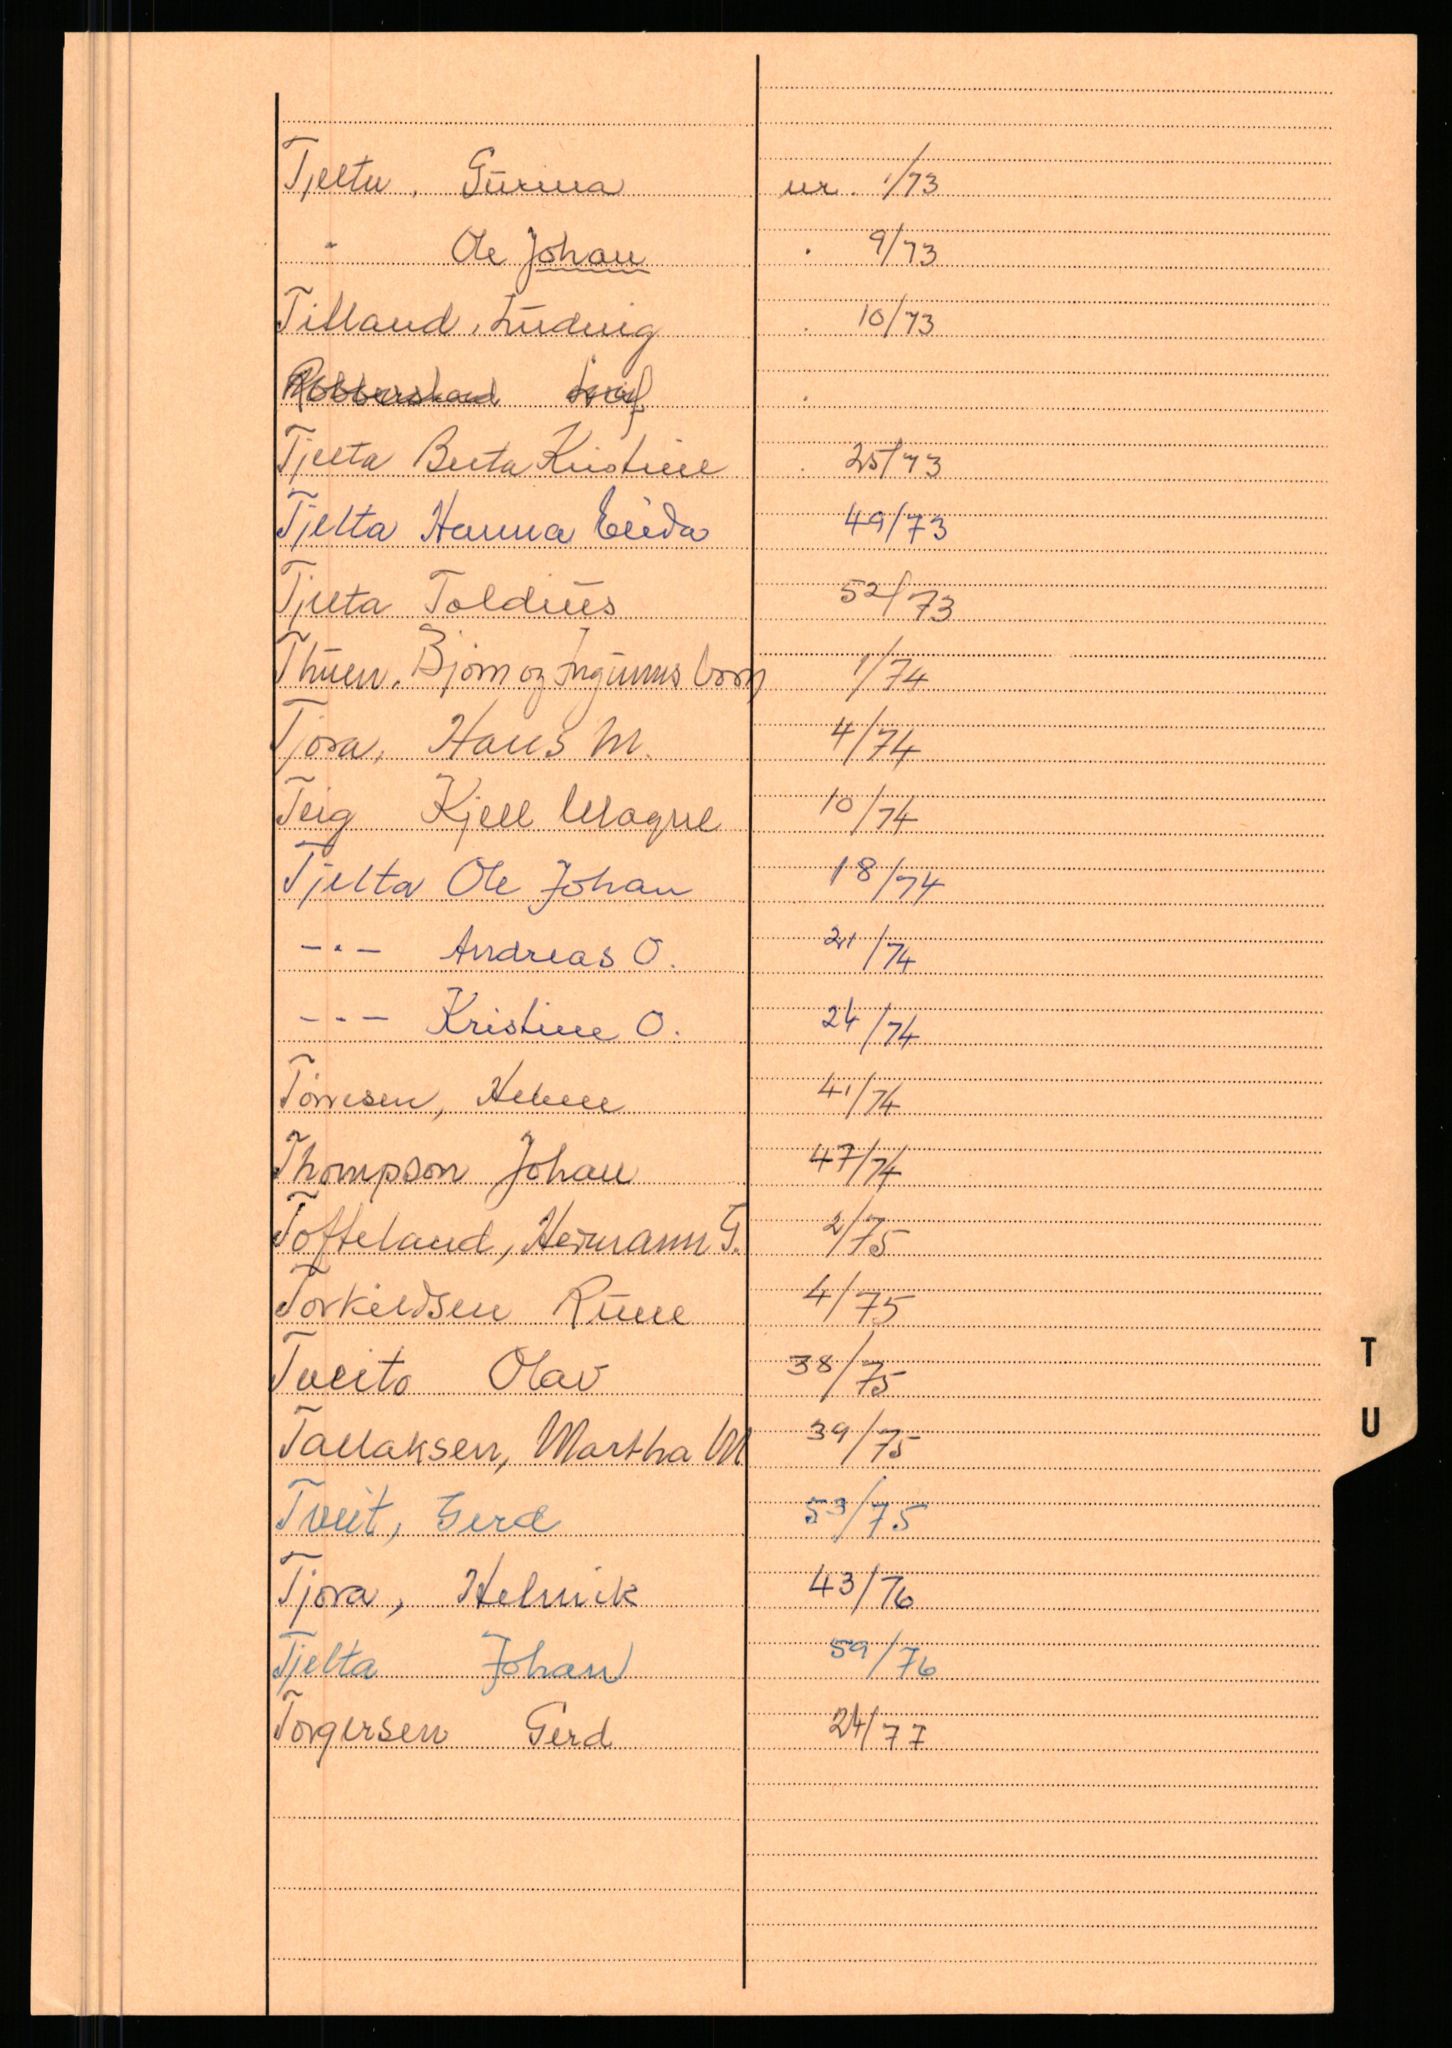 Tjelta, Gurina nr. 1/73
" Ole Johan " 9/73
Tilland, Ludvig " 10/73
Robberstad Leif "
Tjelta Berta Kristine " 25/73
Tjelta Hanna Elida 49/73
Tjelta Toldius 52/73
Thuen, Bjørn og Ingunns barn 1/74
Tjora, Hans M. 4/74
Teig Kjell Magne 10/74
Tjelta Ole Johan 18/74
-"- Andreas O. 21/74
-"- Kristine O. 24/74
Torresen, Helene 41/74
Thompson Johan 47/74
Tofteland, Hermann G. 2/75
Torkildsen Rune 4/75
Tveito Olav 38/75
Tallaksen, Martha M. 39/75
Tveit, Gerd 53/75
Tjora, Helmik 43/76
Tjelta Johan 59/76
Torgersen Gerd 24/77
T
U